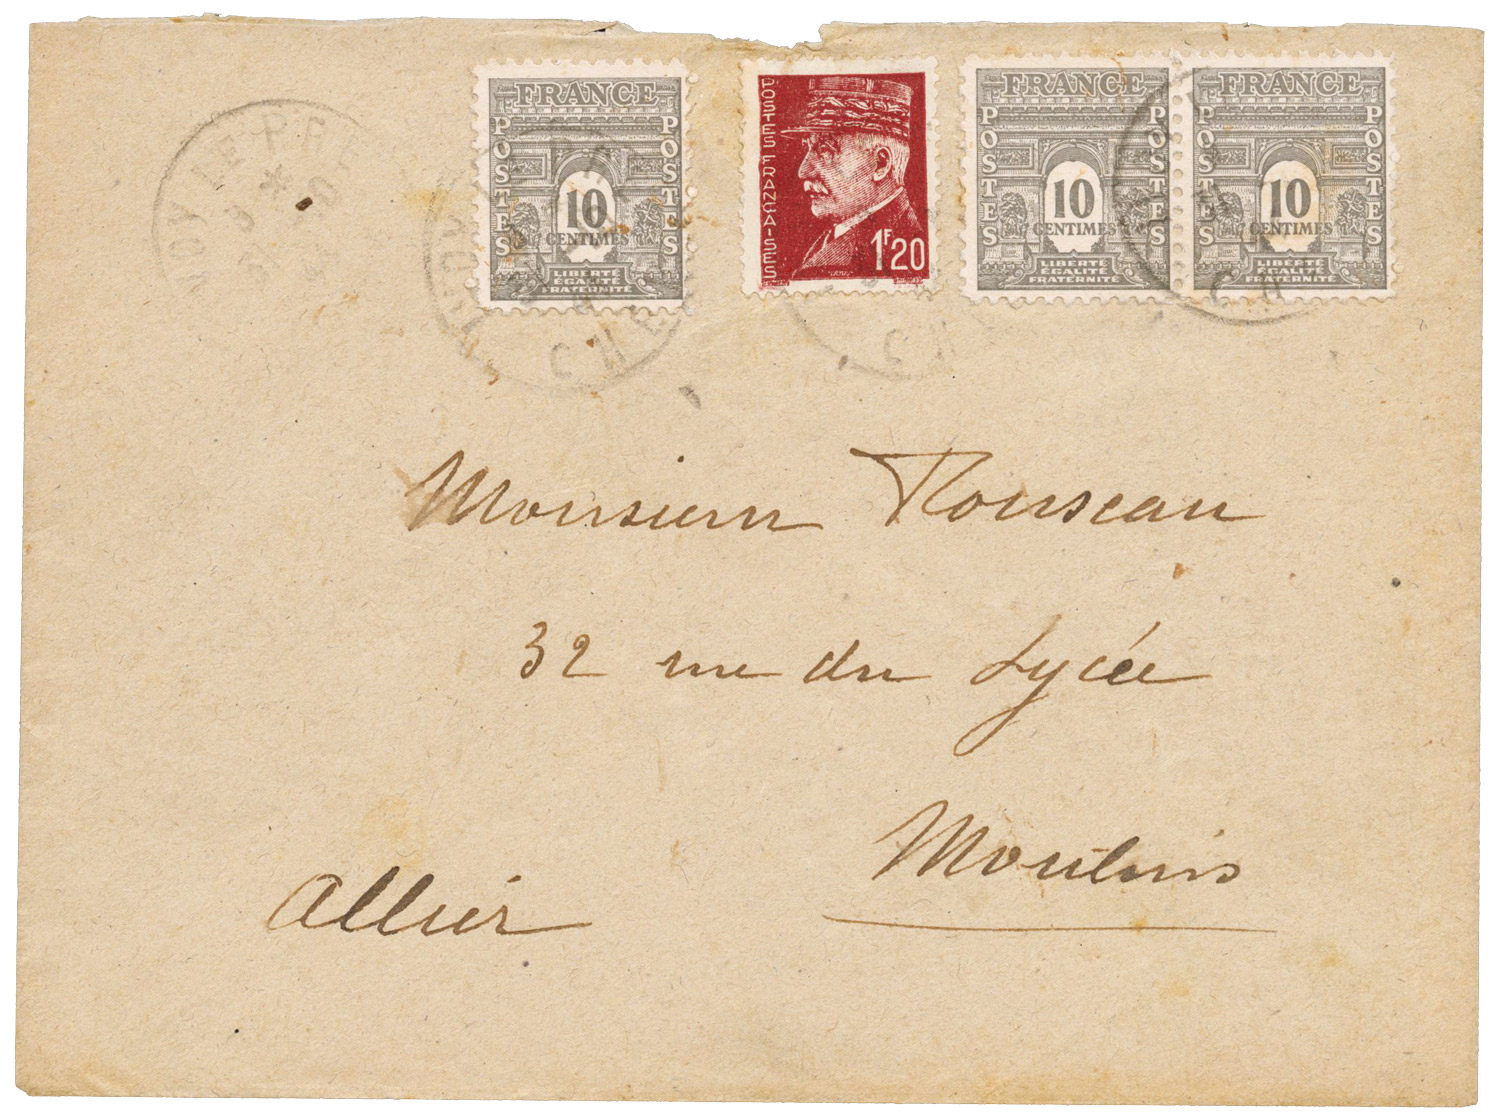 FRANCE
POSTES
POSTES
10
CENTIMES
LIBERTÉ
ÉGALITÉ
FRATERNITÉ
POSTES FRANÇAISES
1F20
FRANCE
POSTES
POSTES
10
CENTIMES
LIBERTÉ
ÉGALITÉ
FRATERNITÉ
FRANCE
POSTES
POSTES
10
CENTIMES
LIBERTÉ
ÉGALITÉ
FRATERNITÉ
Monsieur Rousseau
32 rue du Lycée
Moulins
Allier